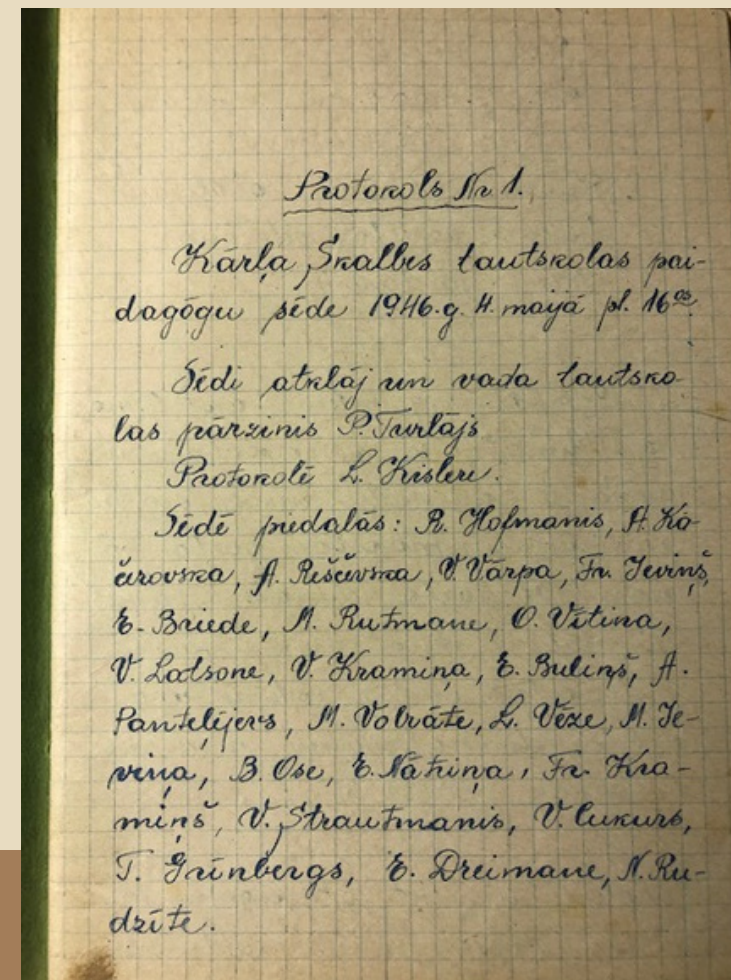 Protokols Nr 1.
Kārļa Skalbes tautskolas pai-
dagogu sēde 1946.g. 4. maijā pl. 16⁰⁰
Sēdi atklāj un vada tautsko-
las pārzinis P. Turlājs
Protokolē L. Kislere.
Sēdē piedalās: R. Hofmanis, A. Ko-
čerovska, A. Reščevska, V. Vārpa, Fr. Ieviņš,
E. Briede, M. Rutmane, O. Vītiņa,
V. Latsone, V. Kramiņa, E. Buliņš, A.
Panteļējevs, M. Volrāte, L. Vēze, M. Ie-
viņa, B. Ose, E. Nātriņa, Fr. Kra-
miņš, V. Strautmanis, V. Cukurs,
T. Grīnbergs, E. Dreimane, N. Ru-
dzīte.